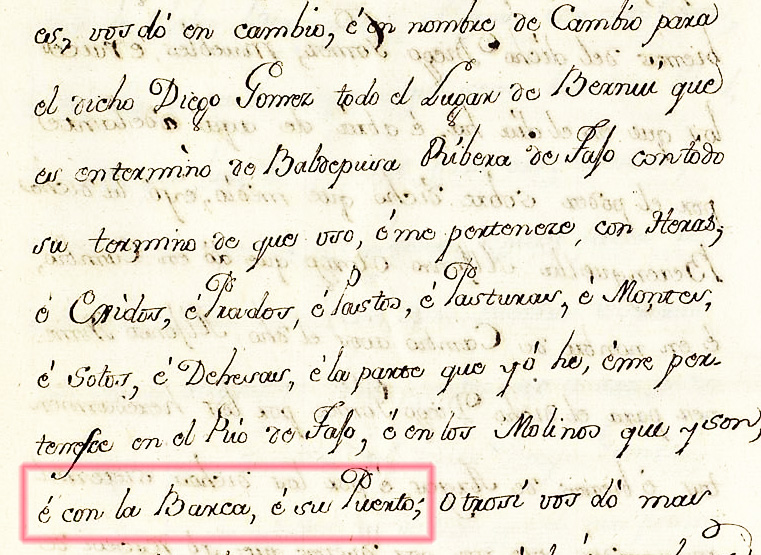 es, vos dó en cambio, é en nombre de Cambio para
el dicho Diego Gomez todo el Lugar de Bernuí que
es en termino de Baldepusa Ribera de Tajo con todo
su termino de que uso, é me perteneze, con Heras,
é Exidos, é Prados, é Pastos, é Pasturas, é Montes,
é Sotos, é Dehesas, é la parte que yó he, é me per-
tenesce en el Rio de Tajo, é en los Molinos que y son,
é con la Barca, é su Puerto; Otrosí vos dó mas